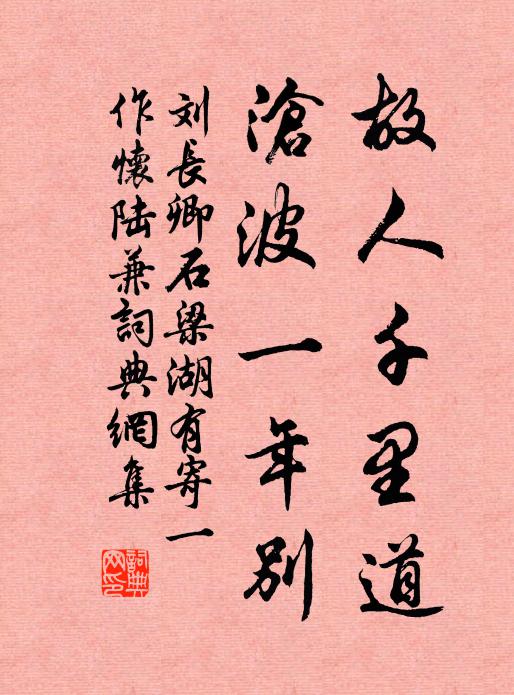 故人千里道
滄波一年別
刘長卿石梁湖有寄一
作懷陆兼詞典網集
詞典网印